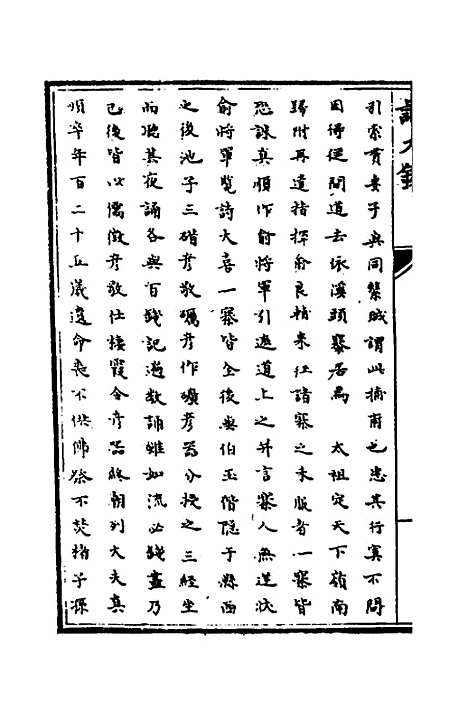 引索賣妻子與同縶賊謂此捕甫也患其行寞不問
因得從間道去詠溪頭寨居焉　太祖定天下嶺南
歸附再遣指揮俞良輔來征諸寨之未服者一寨皆
恐誅真順作俞將軍引遮道上之并言寨人無逆狀
俞將軍覽詩大喜一寨皆全後與伯玉偕隱于縣西
之後池子三碏彥敬礪彥作礦彥器分授之三經坐
而聽其夜誦各與百錢記遍數誦雖如流必錢盡乃
已後皆以儒徵彥敬仕棲霞令彥器終朝列大夫真
順卒年百二十五歲遺命喪不供佛祭不焚楮子孫